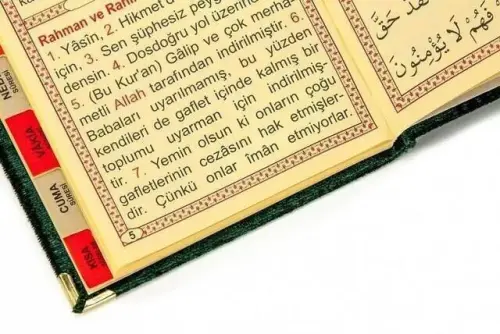 Rahman ve Rah
1. Yâsîn, 2. Hikmet d
için, 3. Sen şüphesiz peyg
densin. 4. Dosdoğru yol üzerin
5. (Bu Kur'an) Gâlip ve çok merha-
metli Allah tarafından indirilmiştir. 6.
Babaları uyarılmamış, bu yüzden
kendileri de gaflet içinde kalmış bir
toplumu uyarman için indirilmiş-
tir. 7. Yemin olsun ki onların çoğu
gafletlerinin cezasını hak etmişler-
dir. Çünkü onlar îmân etmiyorlar.
5
VAKIA
CUMA
SÛRESİ
KISA
حَقَّ
فَهُمْ لَا يُؤْمِنُونَ